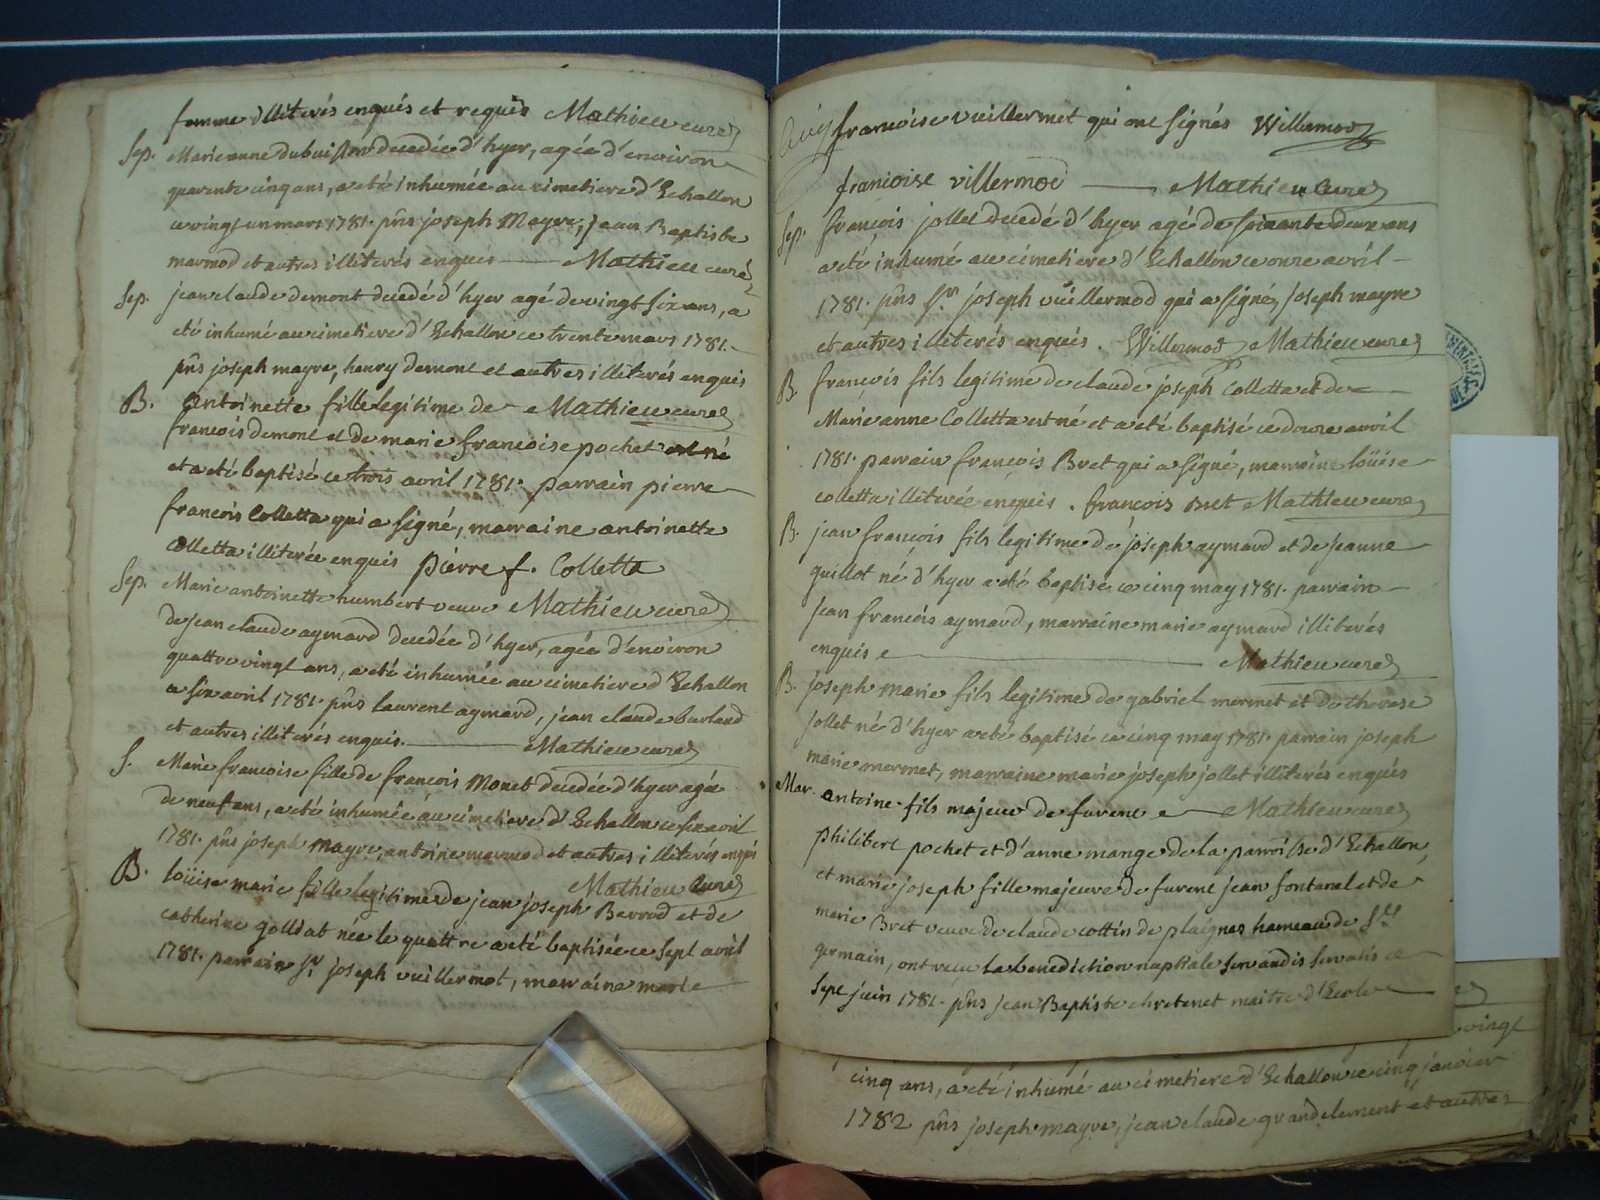 femme illiterés enquis et requis Mathieu curé
Sep. Marie anne dubuisson decedée d'hyer, agée d'environ
quarente cinq ans, a eté inhumée au cimetiere d'Echallon
ce vingt un mars 1781. pñs joseph Mayre, jean Baptiste
marmod et autres illiterés enquis Mathieu curé
Sep. jean claude demont decedé d'hyer agé de vingt six ans, a
eté inhumé au cimetiere d'Echallon ce trente mars 1781.
pñs joseph mayre, henry demont et autres illiterés enquis
B. Antoinette fille legitime de Mathieu curé
francois demont et de marie francoise pochet est né
et a eté baptisé ce trois avril 1781. parrain pierre
francois Colletta qui a signé, marraine antoinette
Colletta illiterée enquis pierre f. Colletta
Sep. Marie antoinette humbert veuve Mathieu curé
de jean claude aymard decedée d'hyer, agée d'environ
quattre vingt ans, a eté inhumée au cimetiere d'Echallon
ce six avril 1781. pñs laurent aymard, jean claude burlend
et autres illiterés enquis. Mathieu curé
S. Marie francoise fille de françois Monet decedée d'hyer agée
de neuf ans, a eté inhumée au cimetiere d'Echallon ce six avril
1781. pñs joseph Mayre, antoine marmod et autres illiterés enquis
Mathieu Curé
B. loüise marie fille legitime de jean joseph Berrod et de
catherine golliat née le quattre a eté baptisée ce sept avril
1781. parrain Sr. joseph vuillermot, marraine marie
francoise vuillermet qui ont signés Willermoz
francoise villermoz Mathieu Curé
Sep. françois jollet decedé d'hyer agé de soixante deux ans
a eté inhumé au cimetiere d'Echallon ce onze avril
1781. pñs Sr. joseph vuillermod qui a signé, joseph mayre
et autres illiterés enquis. Willermoz Mathieu curé
B. françois fils legitime de claude joseph Colletta et de
Marie anne Colletta est né et a eté baptisé ce douze avril
1781. parrain françois Bret qui a signé, marraine loüise
colletta illiterée enquis. francois Bret Mathieu curé
B. jean françois fils legitime de joseph aymard et de jeanne
guillot né d'hyer a eté baptisé ce cinq may 1781. parrain
jean françois aymard, marraine marie aymard illiterés
enquis Mathieu curé
B. joseph marie fils legitime de gabriel mermet et de therese
jollet né d'hyer a eté baptisé ce cinq may 1781. parrain joseph
marie mermet, marraine marie joseph jollet illiterés enquis
Mar. antoine fils majeur de furent Mathieu curé
philibert pochet et d'anne mange de la parroisse d'Echallon,
et marie joseph fille majeure de furent jean fontanel et de
marie Bret veuve de claude cottin de plaignes hameau de St.
germain, ont reçu la benediction nuptiale servandis servatis ce
sept juin 1781. pñs jean Baptiste chretenet maitre d'Ecole
vingt
cinq ans, a eté inhumé au cimetiere d'Echallon ce cinq janvier
1782 pñs joseph mayre, jean claude grandclement et autres